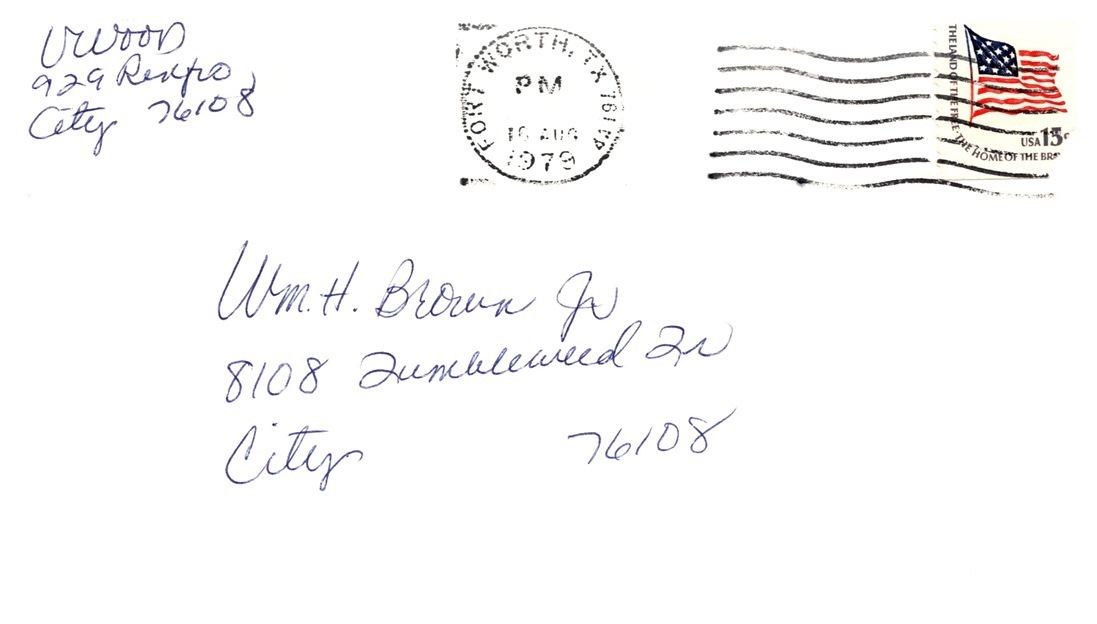 VWOOD
929 Renfro
City 76108
FORT WORTH, TX 761
PM
AUG
1979
THE LAND OF THE FREE THE HOME OF THE BRA
USA 15c
Wm. H. Brown Jr
8108 Tumbleweed Tr
City 76108